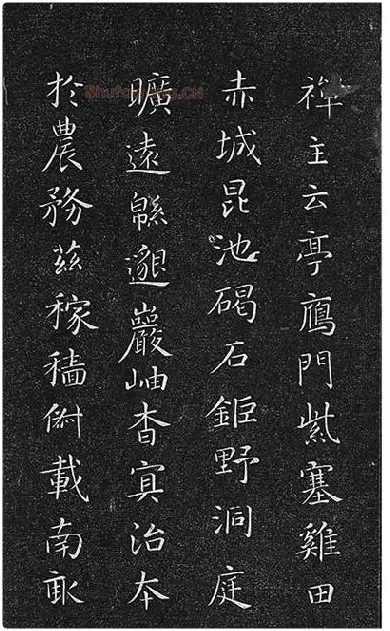 禅主云亭鴈門紫塞雞田
赤城昆池碣石鉅野洞庭
曠遠緜邈巖岫杳冥治本
於農務茲稼穡俶載南畝